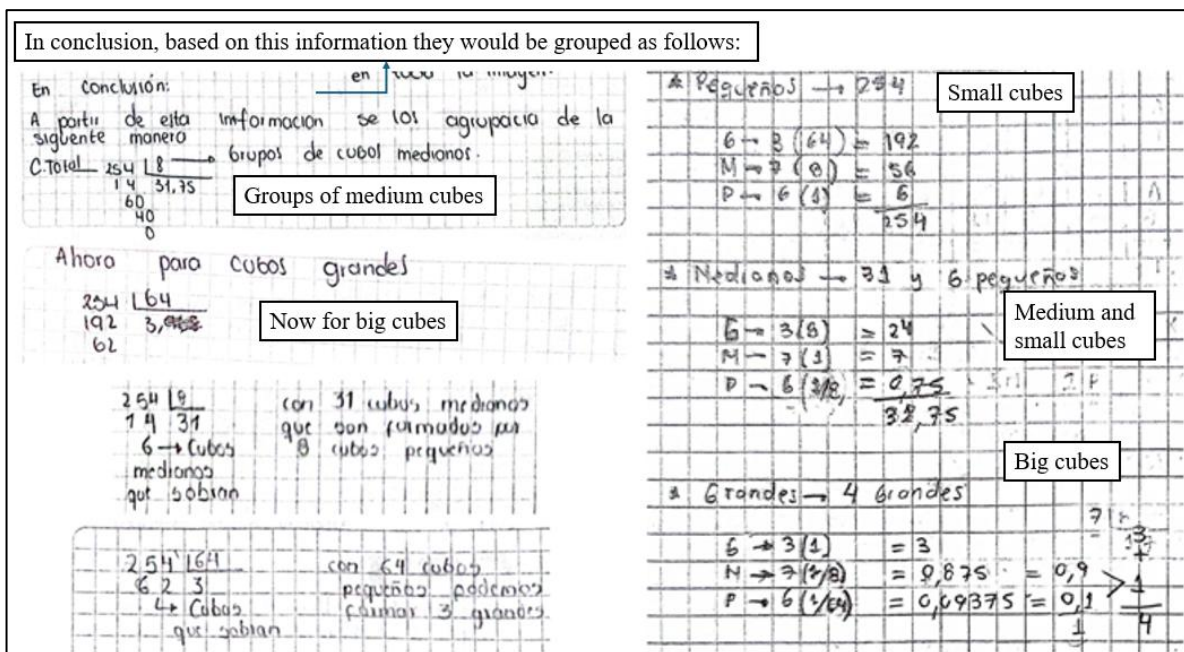 In conclusion, based on this information they would be grouped as follows:
En conclusión:
en
A partir de esta información se los agruparia de la
siguente manera
C.Total 254 | 8 → Grupos de cubos medianos.
14 31,75
60
40
0
Groups of medium cubes
Ahora para cubos grandes
254 | 64
192 3,
62
Now for big cubes
254 | 8
14 31
6 → Cubos
medianos
que sobran
con 31 cubos medianos
que son formados por
8 cubos pequeños
254 | 64
62 3
Cubos
que sobran
con 64 cubos
pequeños podemos
formar 3 grandes
* Pequeños → 254
Small cubes
G → 3 (64) = 192
M → 7 (8) = 56
P → 6 (1) = 6
254
* Medianos → 31 y 6 pequeños
Medium and
small cubes
G → 3(8) = 24
M → 7(1) = 7
P → 6 (1/8) = 0,75
,75
Big cubes
* Grandes → 4 Grandes
G → 3(1) = 3
M → 7(1/8) = 0,875 = 0,9
P → 6(1/64) = 0,09375 = 0,1
1
3
+
1
4